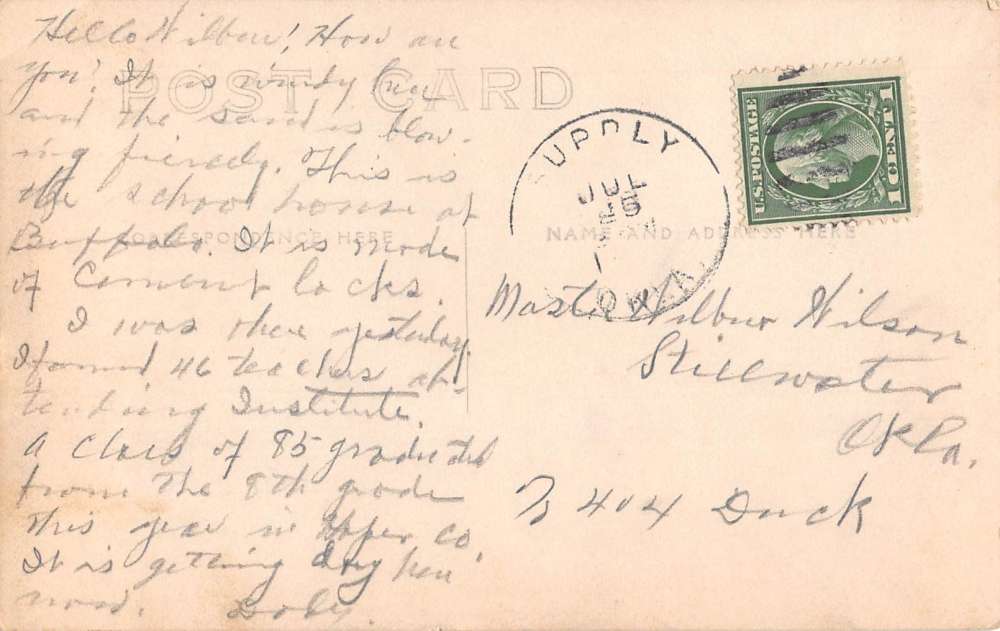 Hello Wilbur! How are
you? It is windy here
and the sand is blow-
ing fiercely. This is
the school house at
Buffalo. It is made
of Cement locks.
I was there yesterday
I found 46 teachers at-
tending Institute.
A class of 85 graduated
from the 8th grade
this year in Harper Co.
It is getting dry here
now.
POST CARD
CORRESPONDENCE HERE
NAME AND ADDRESS HERE
SUPPLY
JUL
25
OKLA.
U.S. POSTAGE
1 CENT 1
Master Wilbur Wilson
Stillwater
Okla.
404 Duck